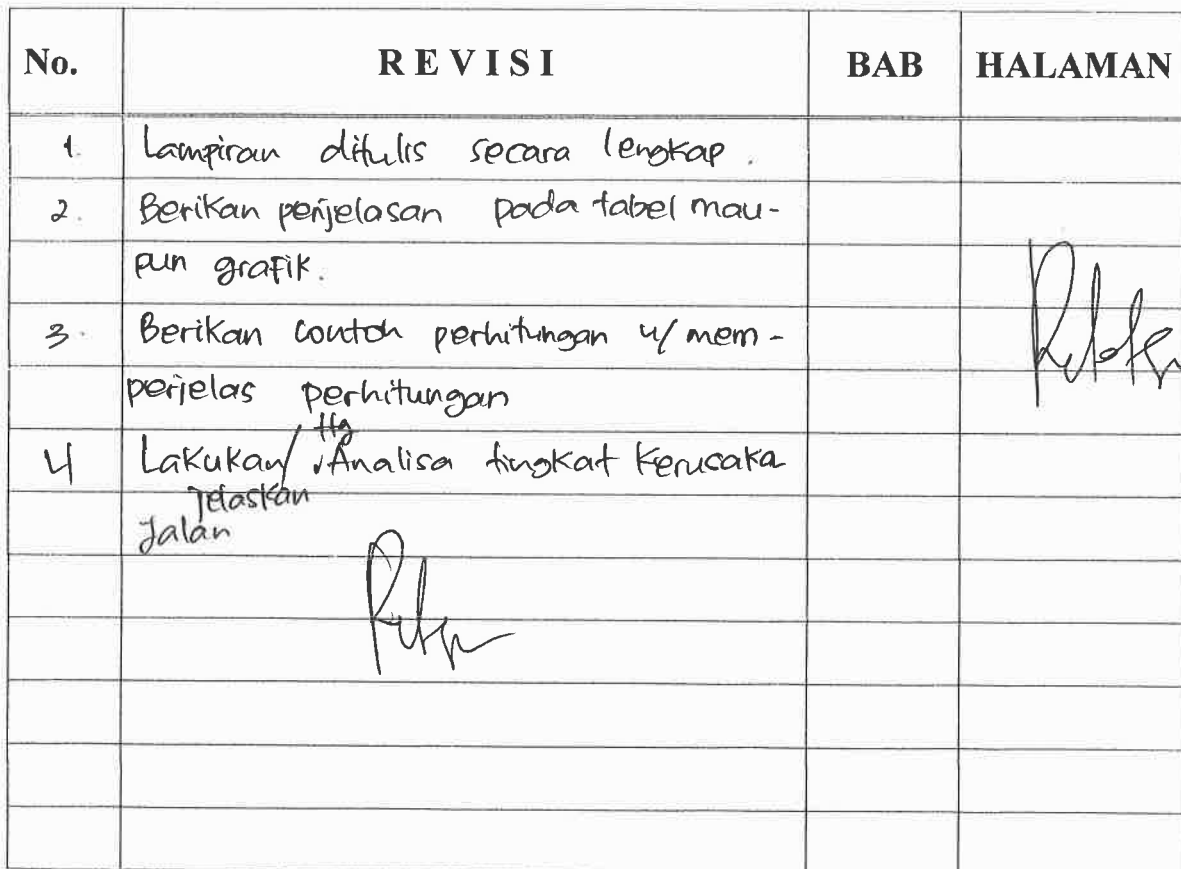 No. REVISI BAB HALAMAN
1. Lampiran ditulis secara lengkap.
2. Berikan penjelasan pada tabel mau-
pun grafik.
3. Berikan contoh perhitungan u/ mem-
perjelas perhitungan
ttg
4 Lakukan/ Analisa tingkat kerusaka
Jelaskan
Jalan